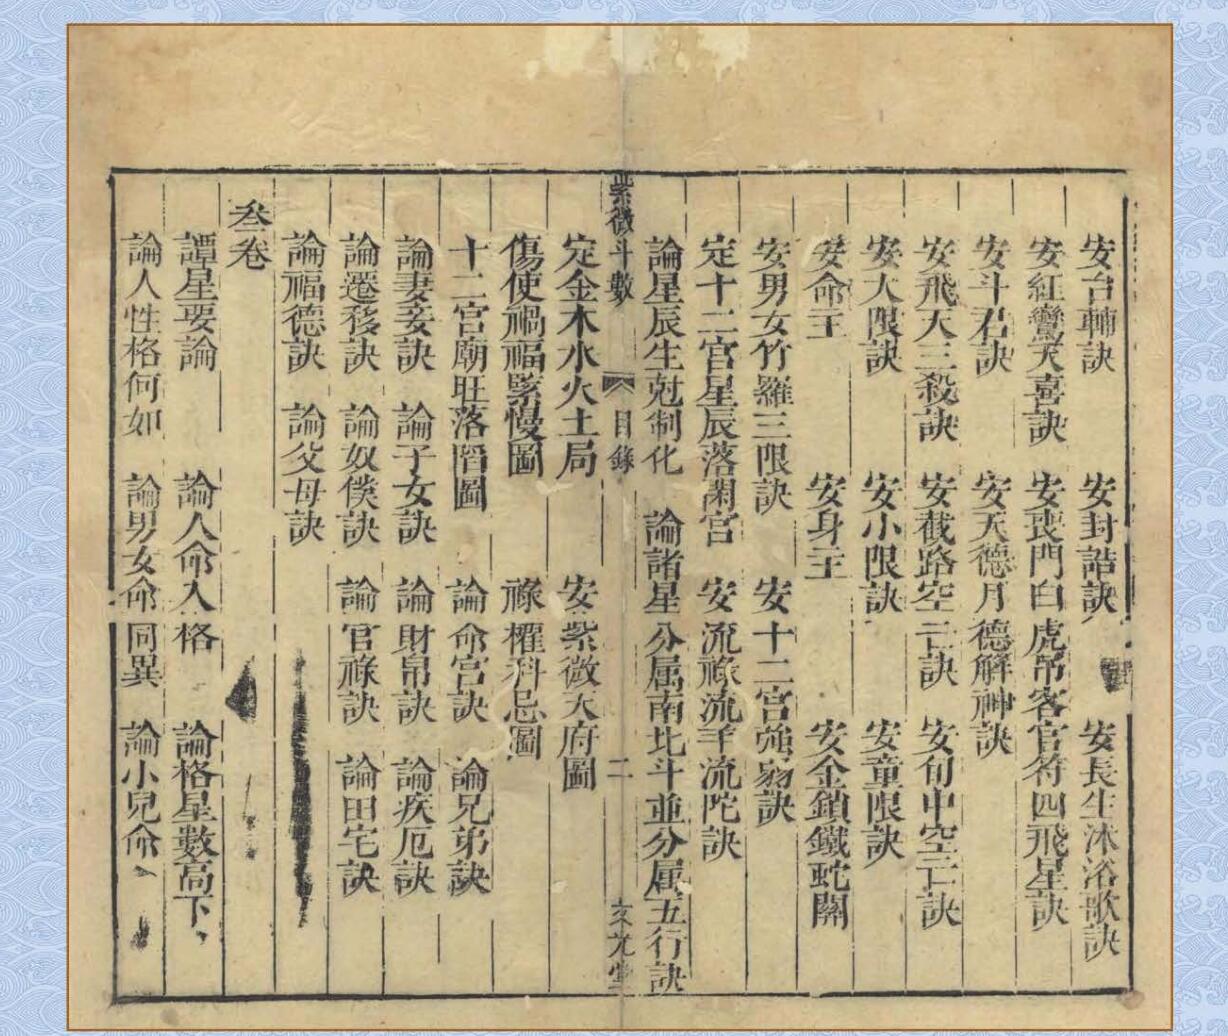 安台輔訣 安封誥訣 安長生沐浴歌訣
安紅鸞天喜訣 安喪門白虎吊客官符四飛星訣
安斗君訣 安天德月德解神訣
安飛天三殺訣 安截路空亡訣 安旬中空亡訣
安大限訣 安小限訣 安童限訣
安命主 安身主 安金鎖鐵蛇關
安男女竹羅三限訣 安十二宮強弱訣
定十二宮星辰落閑宮 安流祿流羊流陀訣
論星辰生尅制化 論諸星分属南北斗並分属五行訣
紫微斗數 目錄 二 文光堂
定金木水火土局 安紫微天府圖
傷使禍福緊慢圖 祿權科忌圖
十二宮廟旺落陷圖 論命宮訣 論兄弟訣
論妻妾訣 論子女訣 論財帛訣 論疾厄訣
論遷移訣 論奴僕訣 論官祿訣 論田宅訣
論福德訣 論父母訣
叄卷
譚星要論 論人命入格 論格星數高下
論人性格何如 論男女命同異 論小兒命